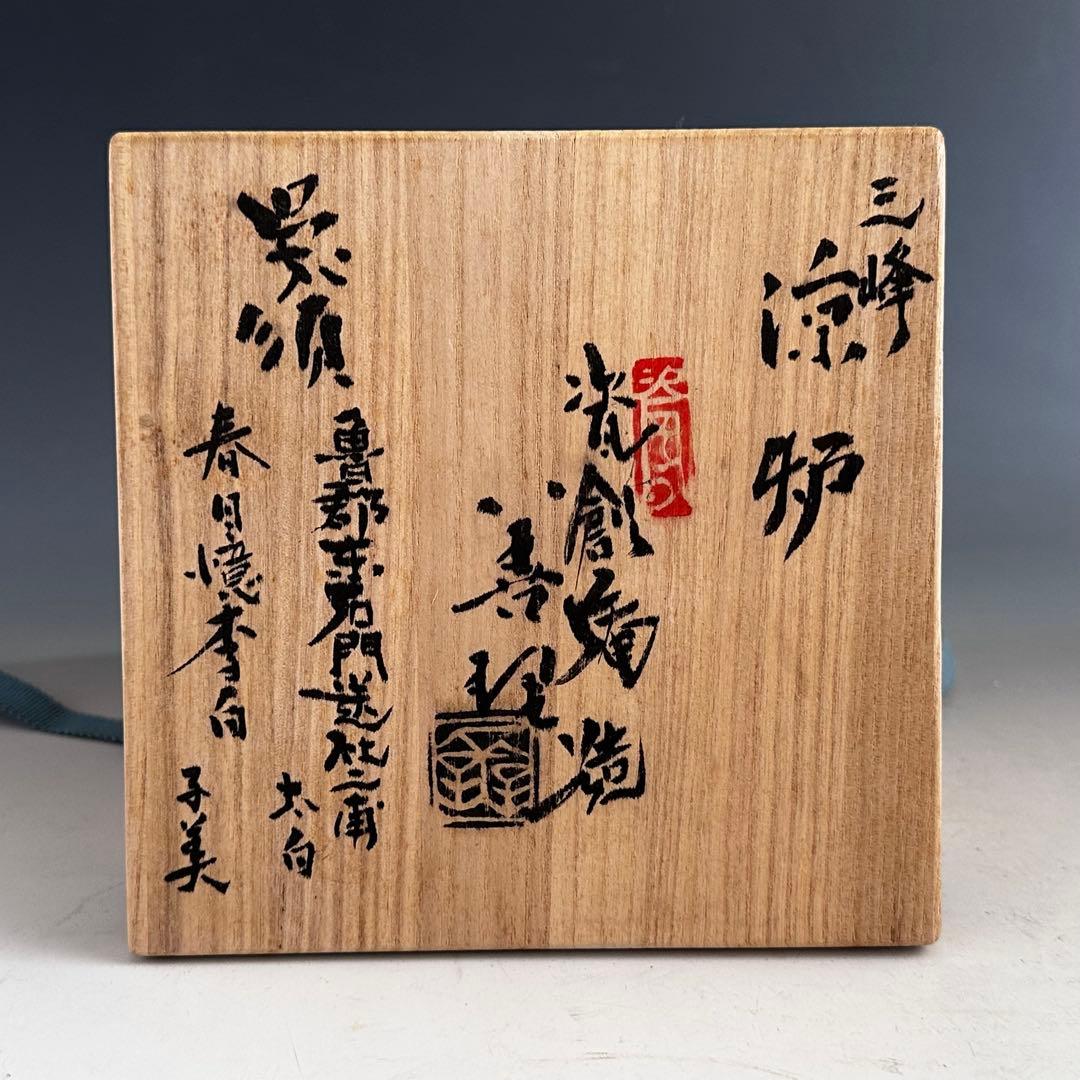 三峰
涼炉
瓷創庵造
善理
呉須
魯郡東石門送杜二甫
太白
春日憶李白
子美